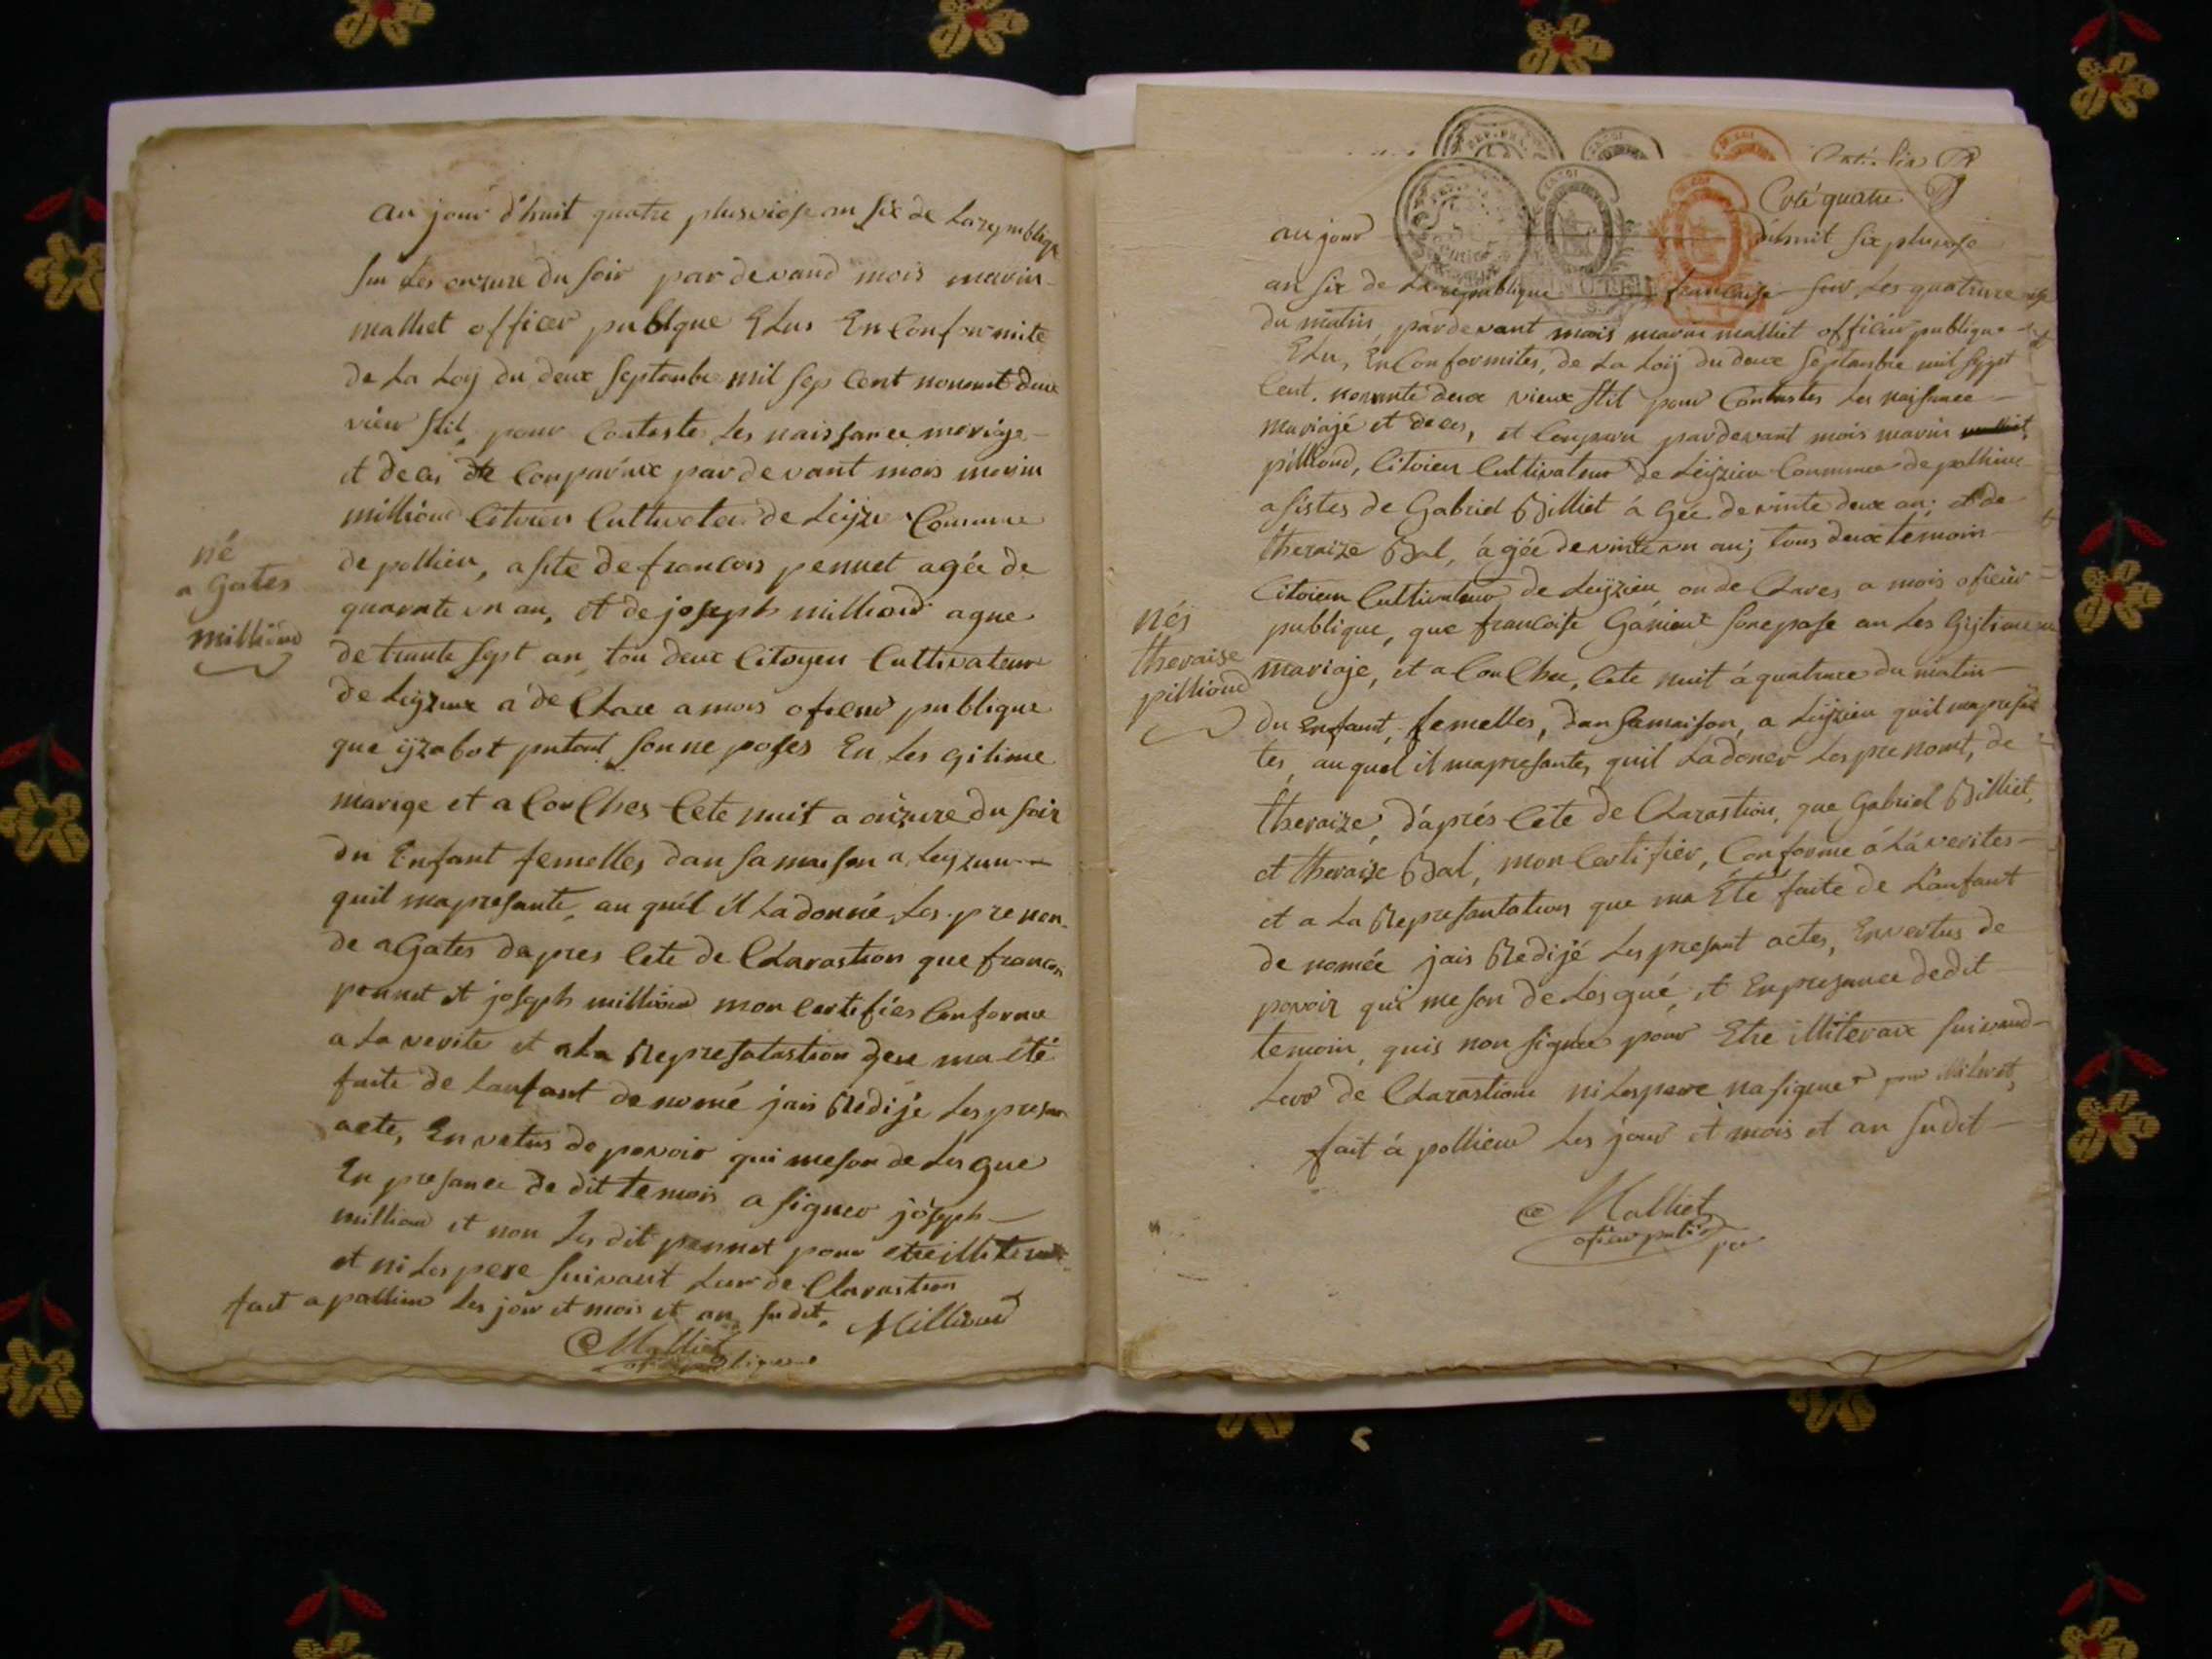 au jour d'huit quatre plusviose an six de La republique
sur Les onzure du soir par devand mois marin
malliet officer publque Elus En Conformite
de La Loy du deux septanbre mil sep Cent nonant deux
vieu stil, pour Contaste Les naissance mariage
et deces et Conparaux par devant mois marin
milliond Citoien Cultivateu de Leyzie Commune
de pollieu, asite de francois pennet agée de
né
a Gates
milliond
quarante un an, et de joseph milliond agne
de trante sept an tou deux Citoyen Cultivateur
de Leyzieux a de Clare a mois oficeur publique
que yzabot putout sonne poses En Les gitime
marige et a CouChes Cete nuit a onzure du soir
du Enfant femelles dan sa maison a Leyzieu
quil mapresante, au quél il La donné Les prenon
de aGates dapres Cete de Clarastion que francois
pennet et joseph milliond mon Certifies Conforme
a La verite et a La Represatastion que ma été
faite de Lanfant denomé jais Redije Les presan
acte, En vertus de povoir qui me son de Les gue
En presance de dit temois a signer joseph
milliond et non Les dit pennet pour etre illiterait
et ni Les pere suivant Leur de Clarastion
fait a pollieu Les jour et mois et an sudit. Milliond
Malliet
Coté six
Coté quatre
au jour d'huit six pluviose
an six de La republique francaise sur Les quatrure
du matin, par devant mois marin malliet officiur publique
Elu, En Conformites, de La Loij du deux septanbre mil sepet
Cent. nonante deux vieux stil pour Contastes Les naisance
mariajé et deces, et Conparu par devant mois marin
pilliond, Citoien Cultivateur de Leyzieu Commune de pollieu
asistes de Gabriel Billiet á Gée de vinte deux an; et de
theraize Bal, ágée de vinte un an; tous deux temoin
Citoien Cultivateur de Leyzieu on de Clares a mois oficiur
nés
theraise
pilliond
publique, que francoise Ganiout sonepose an Les Gijtime
mariaje, et a CouChee, Cete nuit á quatrure du matin
du Enfant, femelles, dan samaison, a Leyzieu quil mapresan
tes, au quel il mapresantes, quil La doner Les prenomt, de
theraize, d'aprés Cete de Clarastion, que Gabriel Billiet,
et theraise Bal, mon Certifier, Conforme á Lá verites
et a La Represantations que ma Eté faite de Lanfant
de nomée jais Redijé Les presant actes, En vertus de
povoir qui me son de Les gué, et En presance dedit
temoin, quis non signer pour Etre illiteraix suivand
Leur de Clarastion ni Les pere na signer pour illiteret,
fait á pollieu Les jour et mois et an sudit
Malliet